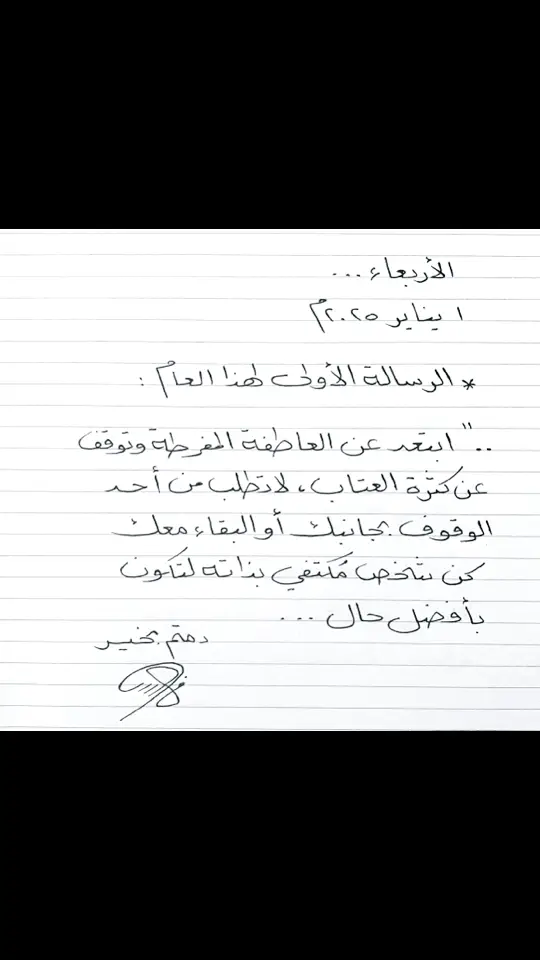 الأربعاء ...
١ يناير ٢٠٢٥م
* الرسالة الأولى لهذا العام :
.." ابتعد عن العاطفة المفرطة وتوقف
عن كثرة العتاب، لا تطلب من أحد
الوقوف بجانبك أو البقاء معك
كن شخص مُكتفي بذاته لتكون
بأفضل حال ...
دمتم بخير